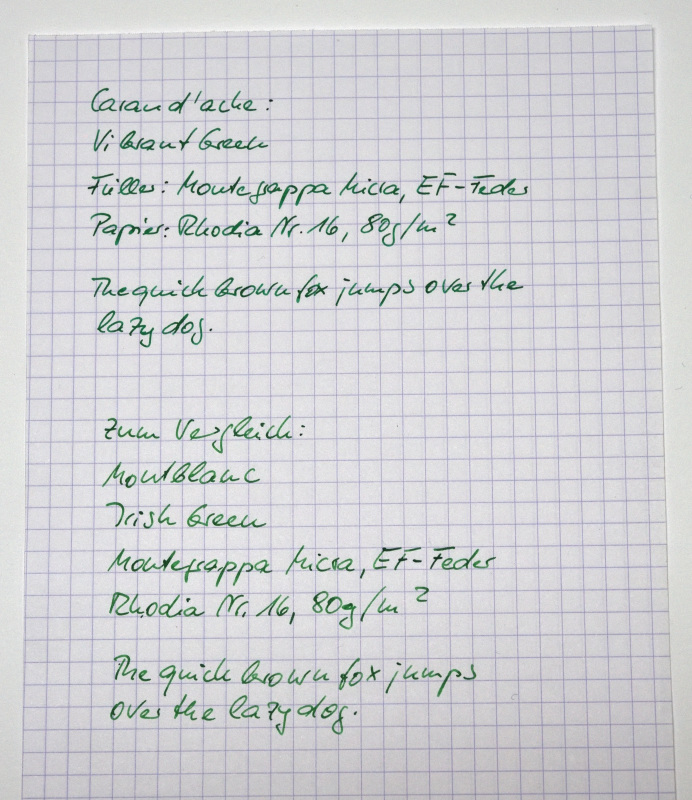 Caran d'ache:
Vibrant Green
Füller: Montegrappa Micra, EF-Feder
Papier: Rhodia Nr. 16, 80g/m²
The quick brown fox jumps over the
lazy dog.
Zum Vergleich:
Montblanc
Irish Green
Montegrappa Micra, EF-Feder
Rhodia Nr. 16, 80g/m²
The quick brown fox jumps
over the lazy dog.